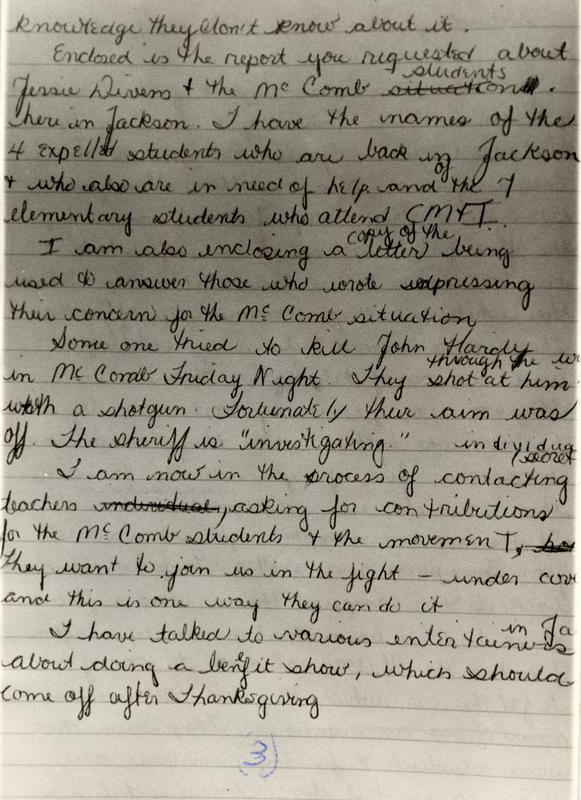 knowledge they don't know about it.
Enclosed is the report you requested about
students
Jessie Divens + the Mc Comb situation.
Here in Jackson. I have the names of the
4 expelled students who are back in Jackson
of
+ who also are in need of help and the 7
elementary students who attend CMTI.
copy of the
I am also enclosing a letter being
used to answer those who wrote expressing
their concern for the Mc Comb situation
Some one tried to kill John Hardy
through the w
in Mc Comb Friday Night. They shot at him
with a shotgun. Fortunately their aim was
off. The sheriff is "investigating."
individua
/secret
I am now in the process of contacting
teachers individual, asking for contributions
for the Mc Comb students + the movement,
they want to join us in the fight – under cov
and this is one way they can do it
in Ja
I have talked to various entertainers
about doing a benefit show, which should
come off after Thanksgiving
(3)